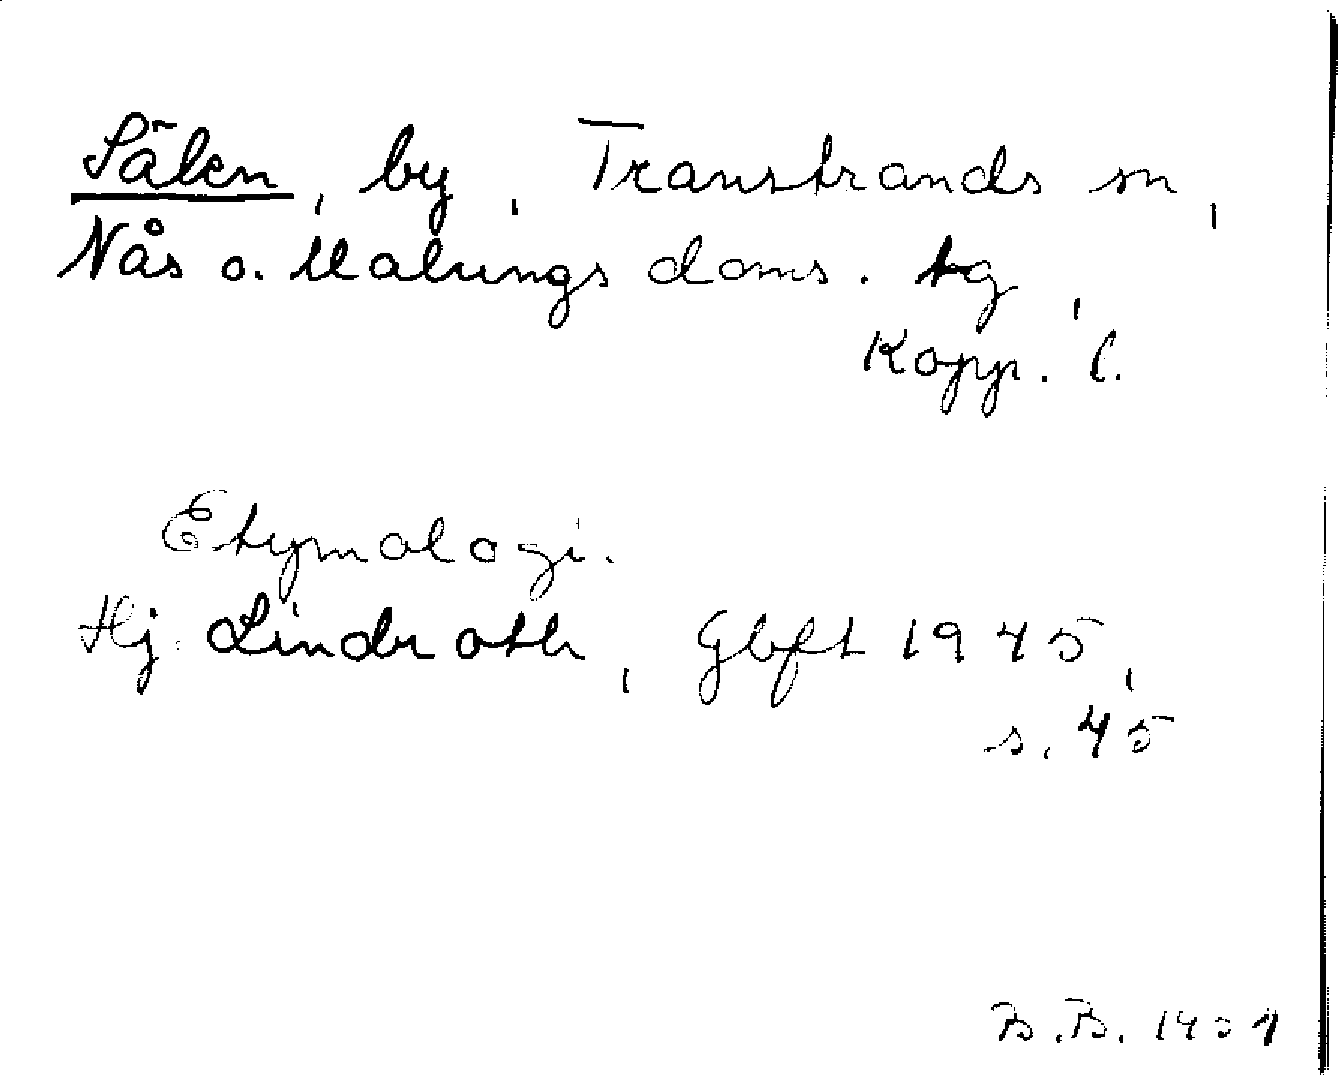 Sälen, by, Transtrands sn,
Nås o. Malungs doms. tg,
Kopp. l.
Etymologi.
Hj. Lindroth, Gbft 1945,
s. 45
B.B.